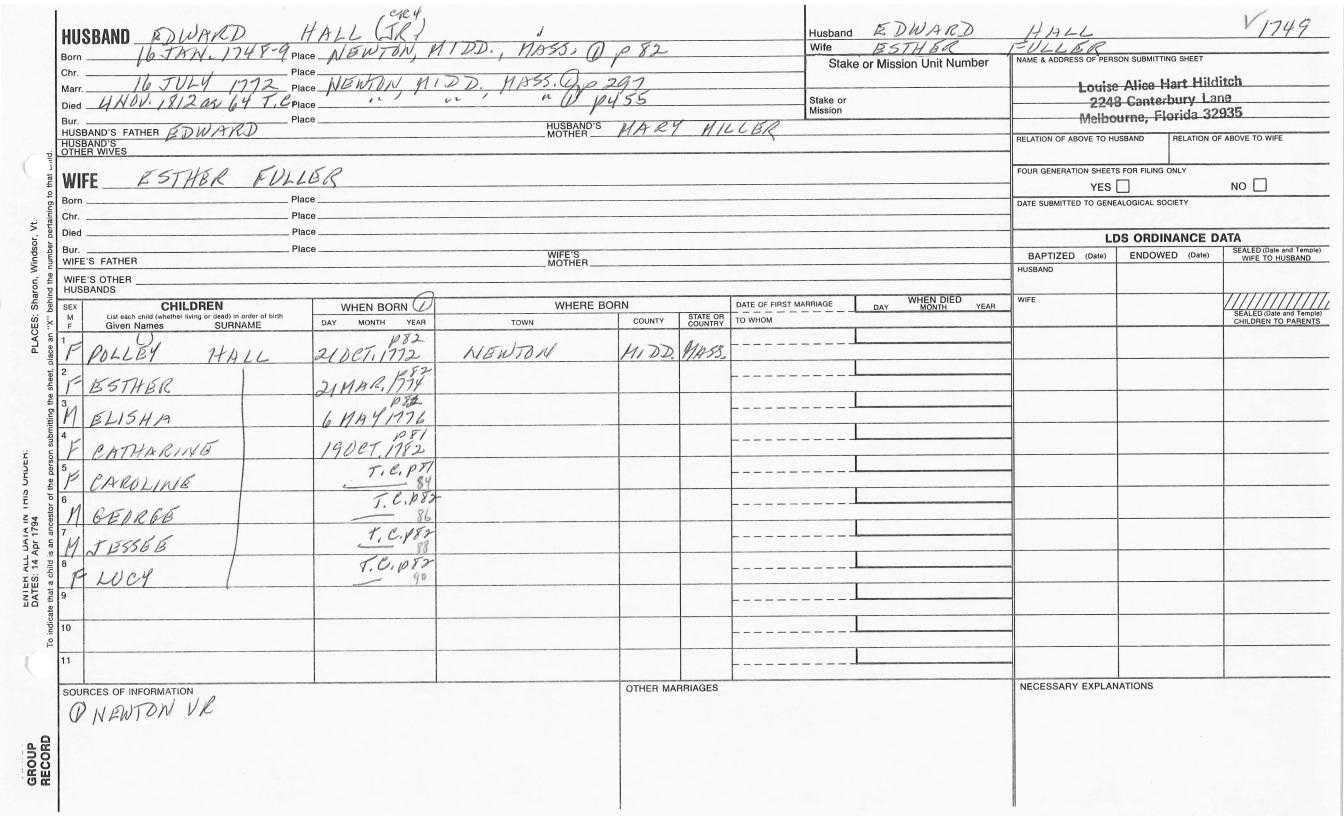 CR4
HUSBAND EDWARD HALL (JR)
Born 16 JAN. 1748-9 Place NEWTON, MIDD., MASS. ① p 82
Chr. Place
Marr. 16 JULY 1772 Place NEWTON MIDD. MASS. ① p 297
Died 4 NOV. 1812 ae 64 T.C. Place " , " , " ① p455
Bur. Place
HUSBAND'S FATHER EDWARD HUSBAND'S MOTHER MARY MILLER
HUSBAND'S OTHER WIVES
WIFE ESTHER FULLER
Born Place
Chr. Place
Died Place
Bur. Place
WIFE'S FATHER WIFE'S MOTHER
WIFE'S OTHER HUSBANDS
Husband EDWARD HALL √ 1749
Wife ESTHER FULLER
Stake or Mission Unit Number
Stake or Mission
NAME & ADDRESS OF PERSON SUBMITTING SHEET
Louise Alice Hart Hilditch
2248 Canterbury Lane
Melbourne, Florida 32935
RELATION OF ABOVE TO HUSBAND RELATION OF ABOVE TO WIFE
FOUR GENERATION SHEETS FOR FILING ONLY
YES NO
DATE SUBMITTED TO GENEALOGICAL SOCIETY
LDS ORDINANCE DATA
BAPTIZED (Date) ENDOWED (Date) SEALED (Date and Temple) WIFE TO HUSBAND
HUSBAND
WIFE
SEALED (Date and Temple) CHILDREN TO PARENTS
SEX M F CHILDREN WHEN BORN ① WHERE BORN DATE OF FIRST MARRIAGE WHEN DIED
List each child (whether living or dead) in order of birth
Given Names SURNAME DAY MONTH YEAR TOWN COUNTY STATE OR COUNTRY TO WHOM DAY MONTH YEAR
1 F POLLEY HALL 21 OCT. 1772 p82 NEWTON MIDD. MASS.
2 F ESTHER 21 MAR. 1774 p82
3 M ELISHA 6 MAY 1776 p82
4 F CATHARINE 19 OCT. 1782 p81
5 F CAROLINE T.C. p81 84
6 M GEORGE T.C. p82 86
7 M JESSEE T.C. p82 88
8 F LUCY T.C. p82 90
9
10
11
SOURCES OF INFORMATION
① NEWTON VR
OTHER MARRIAGES
NECESSARY EXPLANATIONS
ENTER ALL DATA IN THIS ORDER:
DATES: 14 Apr 1794 PLACES: Sharon, Windsor, Vt.
To indicate that a child is an ancestor of the person submitting the sheet, place an "X" behind the number pertaining to that child.
GROUP
RECORD